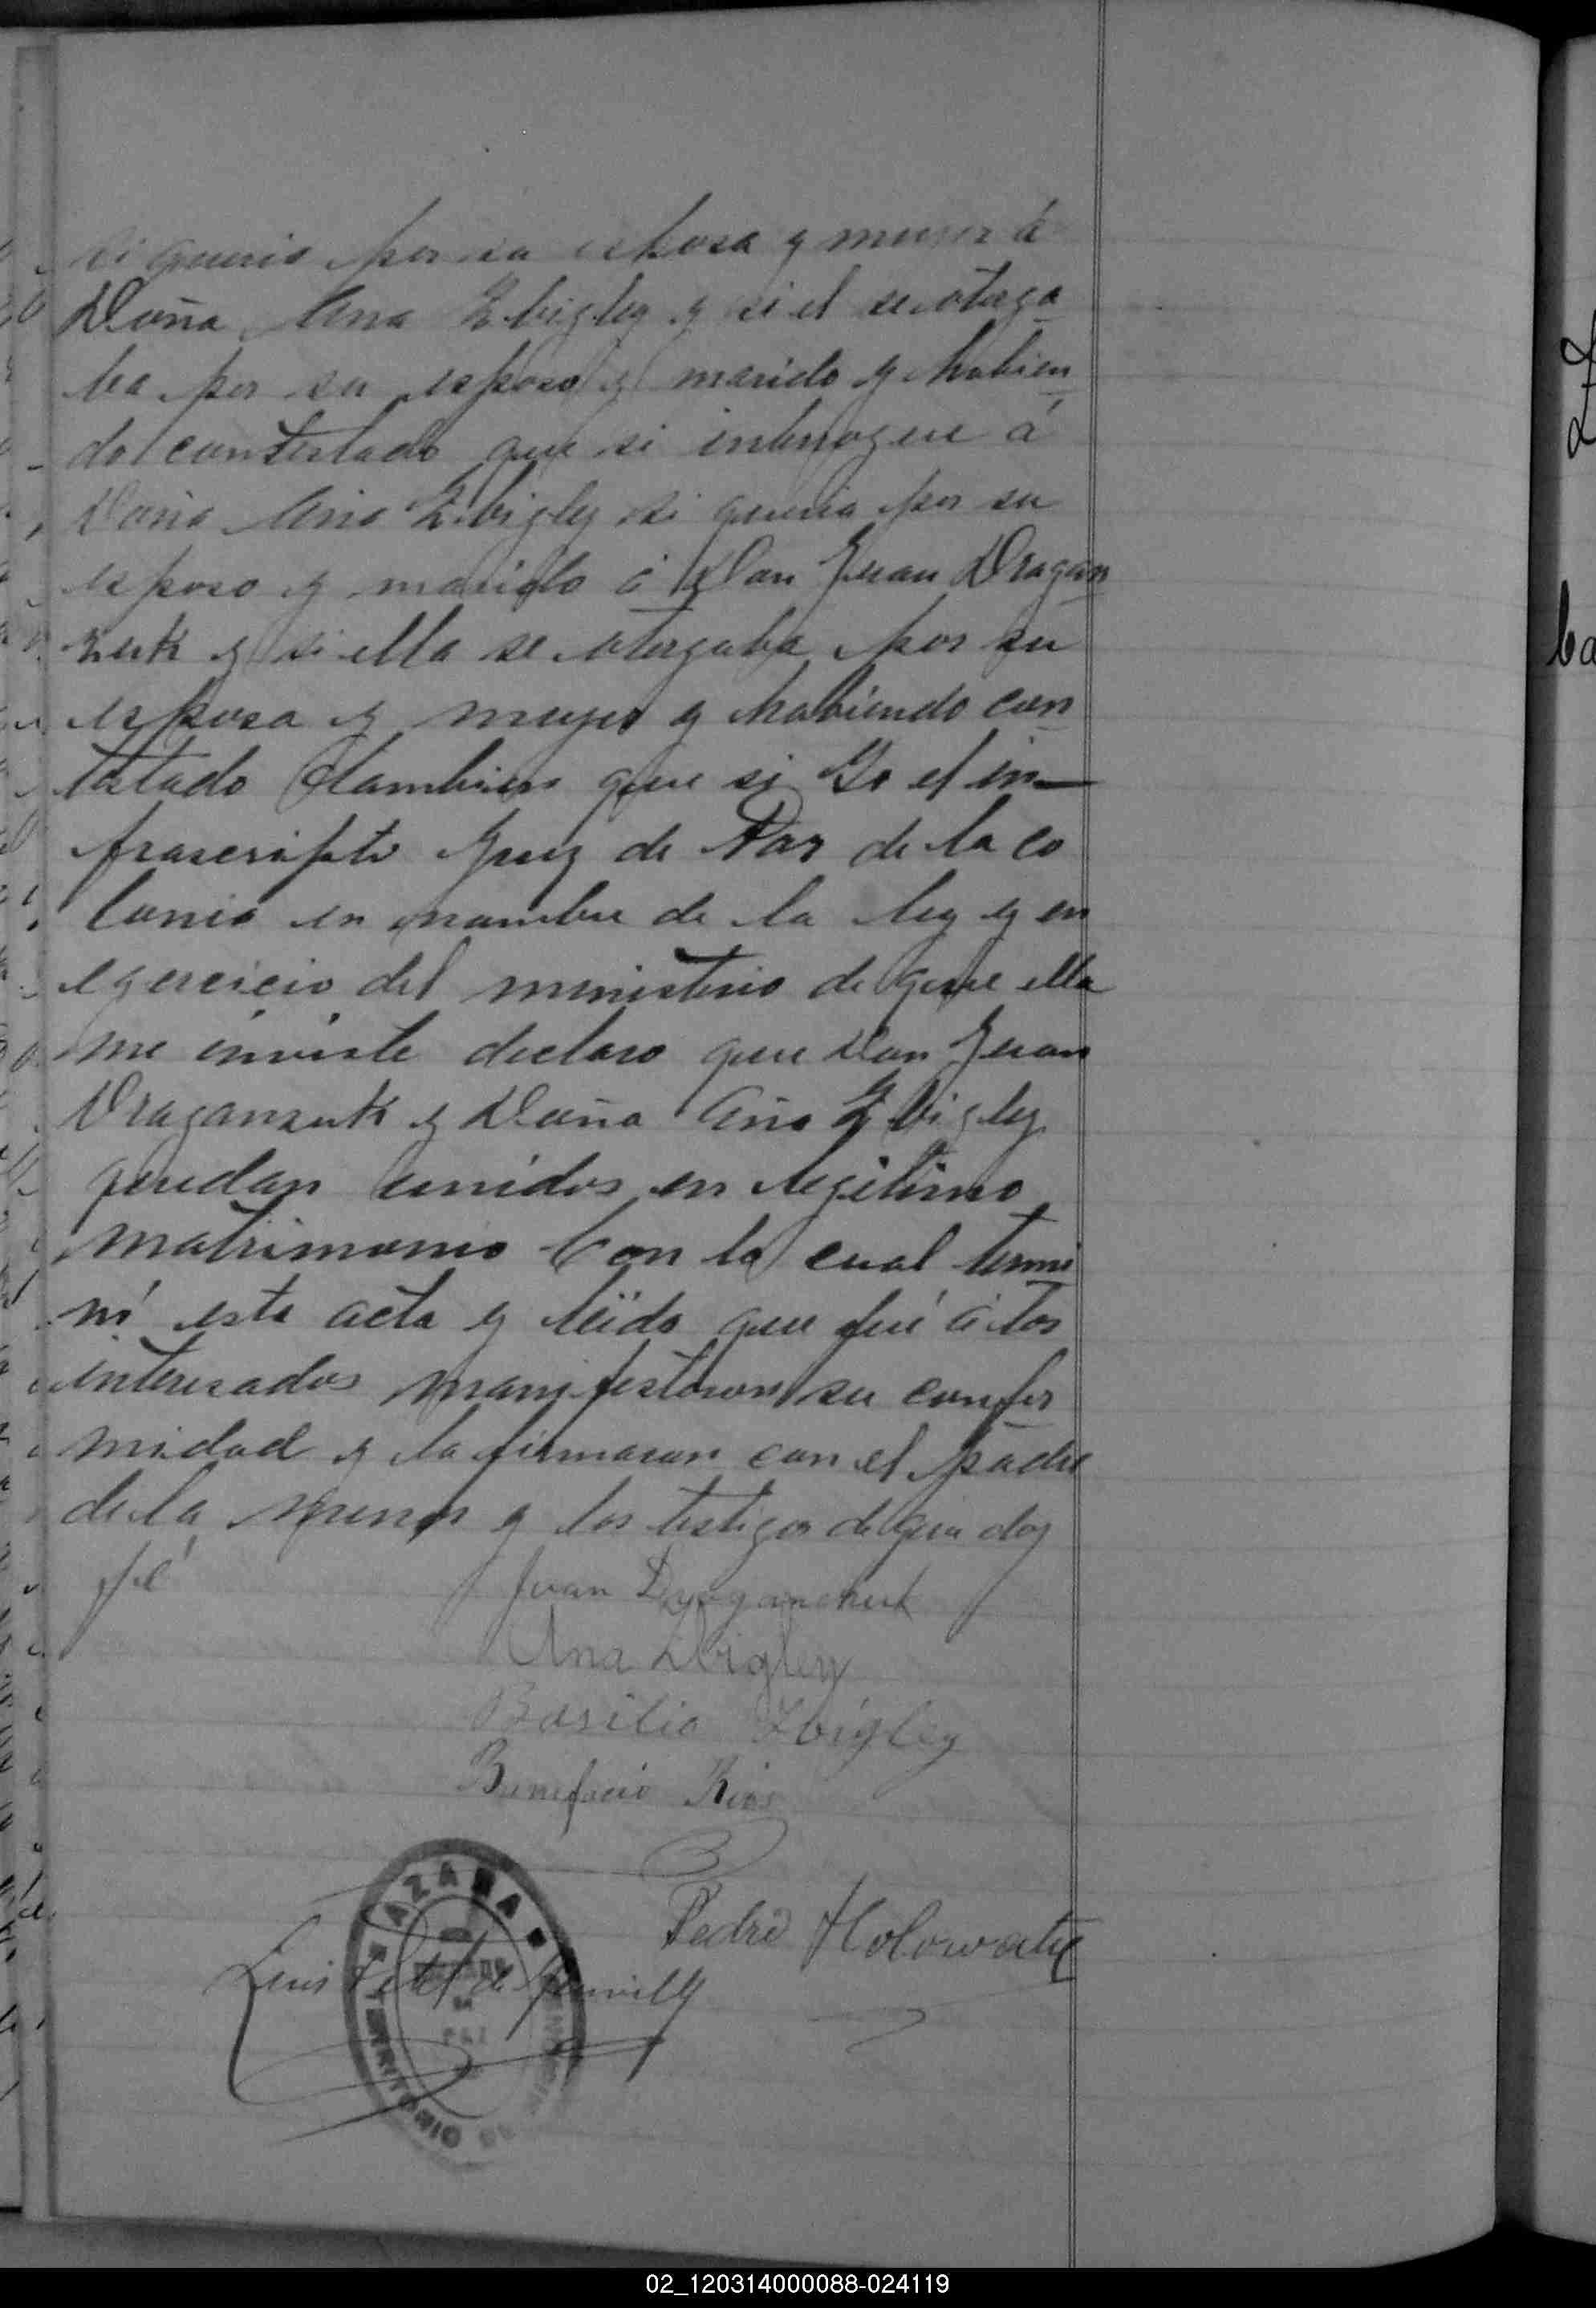 si queria por su esposa y mujer á
Doña Ana Zbigley y si el se otorga
ba por su esposo y marido y habien
do contestado que si interrogue á
Doña Ana Zbigley si queria por su
esposo y marido á Don Juan Dragan
zuk y si ella se otorgaba por su
esposa y mujer y habiendo con
testado tambien que si Yo el in—
frascripto Juez de Paz de la co
lonia en nombre de la ley y en
egercicio del ministerio de que ella
me inviste declaro que Don Juan
Draganzuk y Doña Ana Zbigley
quedan unidos en legitimo
matrimonio Con lo cual termi
nó esta acta y leido que fué á los
interesados manifestaron su confor
midad y la firmaron con el padre
de la menor y los testigos de que doy
fé
Juan Dragančuk
Ana Zbigley
Basilio Zbigley
Bonefacio Rios
Pedro Holowaty
Luis Petit de
AZARA
TERRITORIO DE
02_120314000088-024119